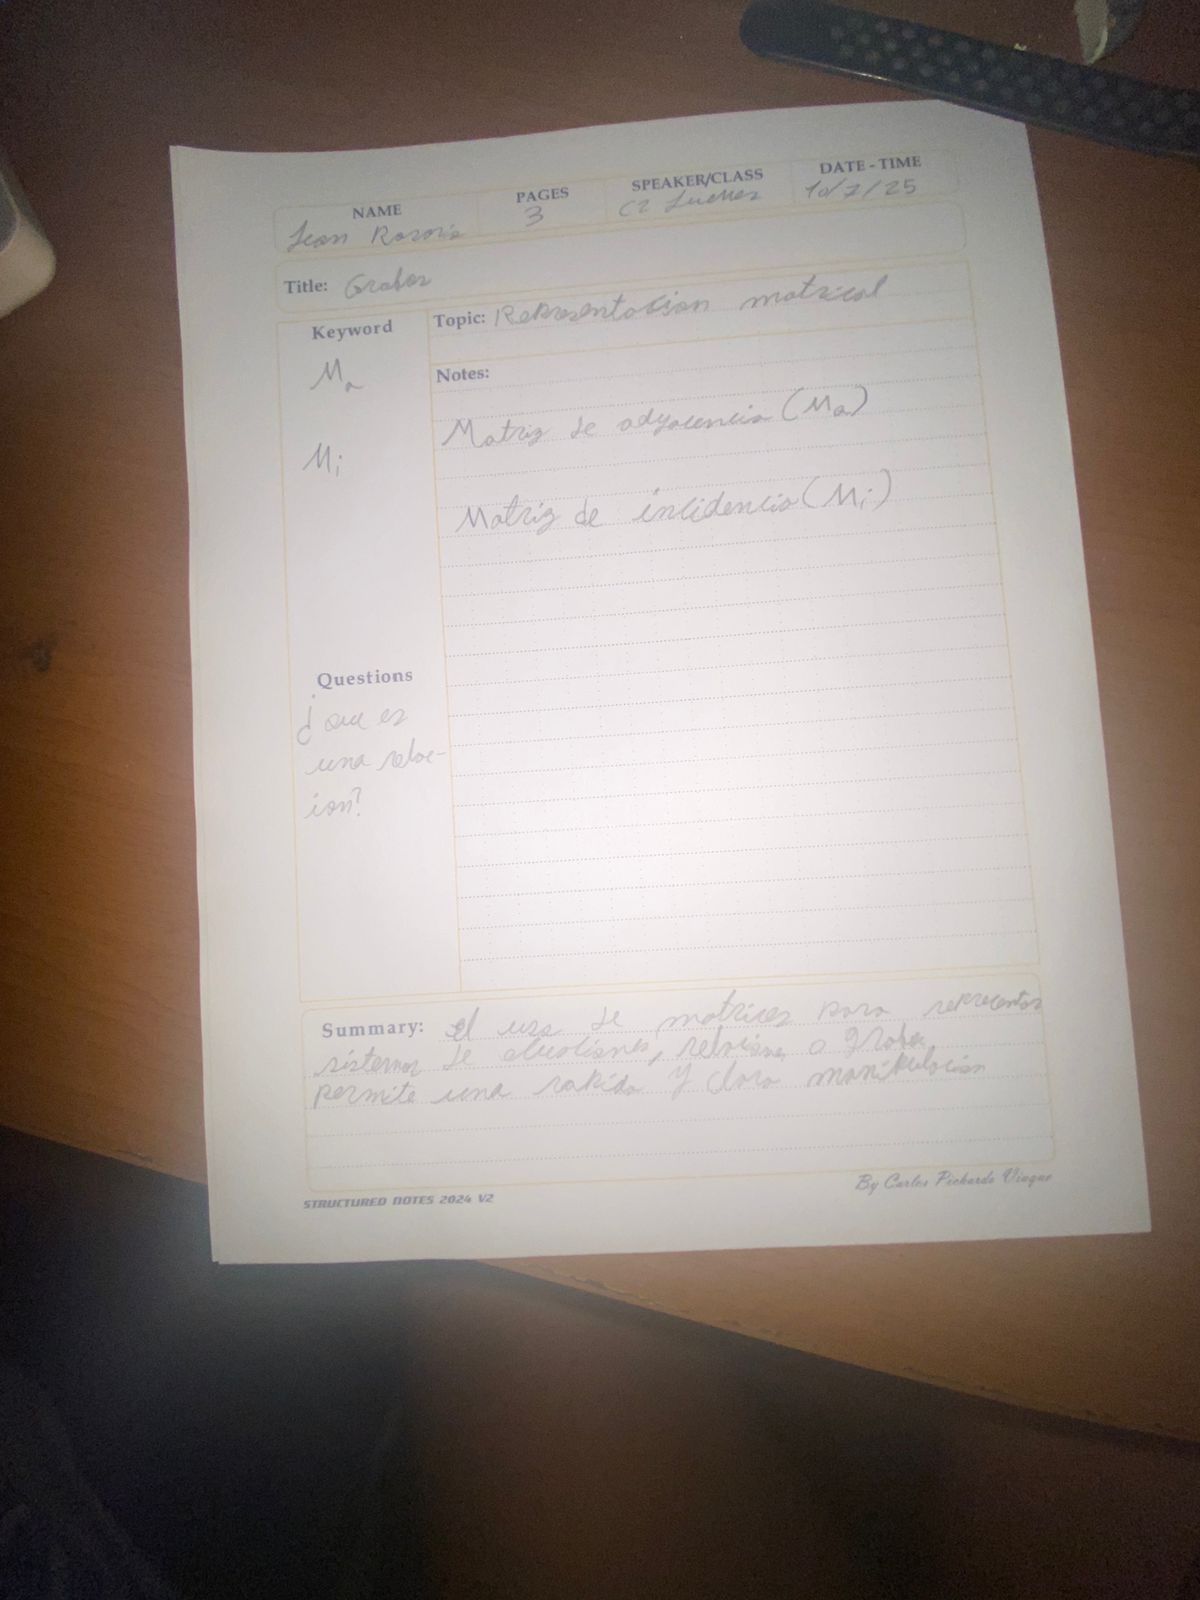 NAME PAGES SPEAKER/CLASS DATE - TIME
Jean 3 10/7/25
Title: Grafos
Keyword
Topic: Representacion matricial
Ma
Notes:
Matriz de adyacencia (Ma)
Mi
Matriz de incidencia (Mi)
Questions
¿ que es
una relac-
ion?
Summary: el uso de matrices para representar
sistemas de relaciones o grafos
permite una rapida y clara manipulacion
STRUCTURED NOTES 2024 V2
By Carlos Pichardo Viuque